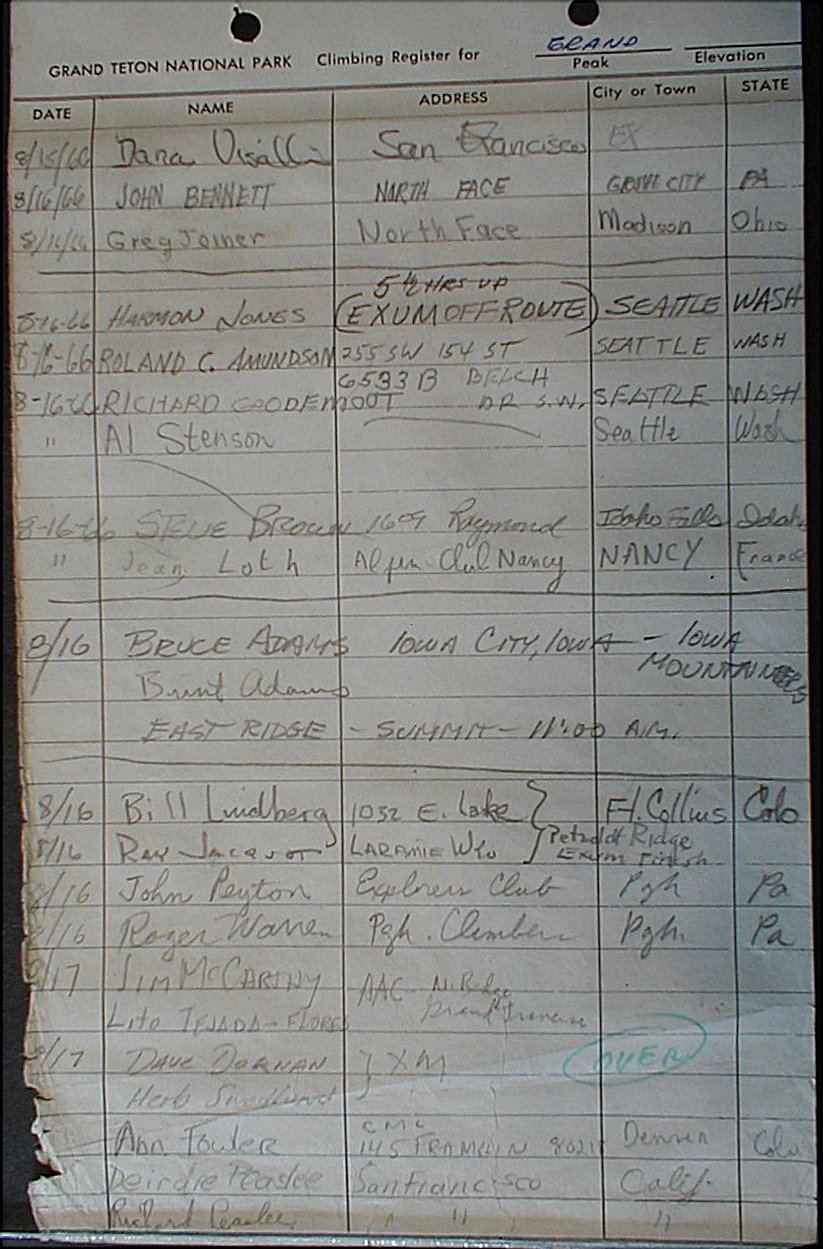 GRAND TETON NATIONAL PARK Climbing Register for GRAND
Peak Elevation
DATE NAME ADDRESS City or Town STATE
8/15/66 Dana Visalli San Francisco
8/16/66 JOHN BENNETT NORTH FACE GROVE CITY PA
8/16/66 Greg Joiner North Face Madison Ohio
5 1/2 HRS UP
8-16-66 HARMON JONES (EXUM OFF-ROUTE) SEATTLE WASH
8-16-66 ROLAND C. AMUNDSON 255 SW 154 ST SEATTLE WASH
6533 B BELCH
8-16-66 RICHARD GOODEMOUT DR S.W. SEATTLE WASH
" Al Stenson Seattle Wash
8-16-66 STEVE BROWN 1609 Raymond Idaho Falls Idaho
" Jean Loth Alpin Club Nancy NANCY France
8/16 BRUCE ADAMS IOWA CITY, IOWA - IOWA
MOUNTAINEERS
Adams
EAST RIDGE - SUMMIT - 11:00 A.M.
8/16 Bill Lindberg 1032 E. Lake Ft. Collins Colo
8/16 Ray Jacquot LARAMIE WYO Petzoldt Ridge
Exum Finish
8/16 John Peyton Explorers Club Pgh Pa
8/16 Roger Warren Pgh. Climbers Pgh. Pa
8/17 JIM MCCARTHY AAC N. Ridge
Grand Traverse
Lito TEJADA-FLORES
8/17 DAVE DORNAN } XM OVER
Herb Swedlund
CMC
Ann Fowler 145 FRANKLIN 80218 Denver Colo
Deirdre Peaslee San Francisco Calif.
Richard Peaslee " " "